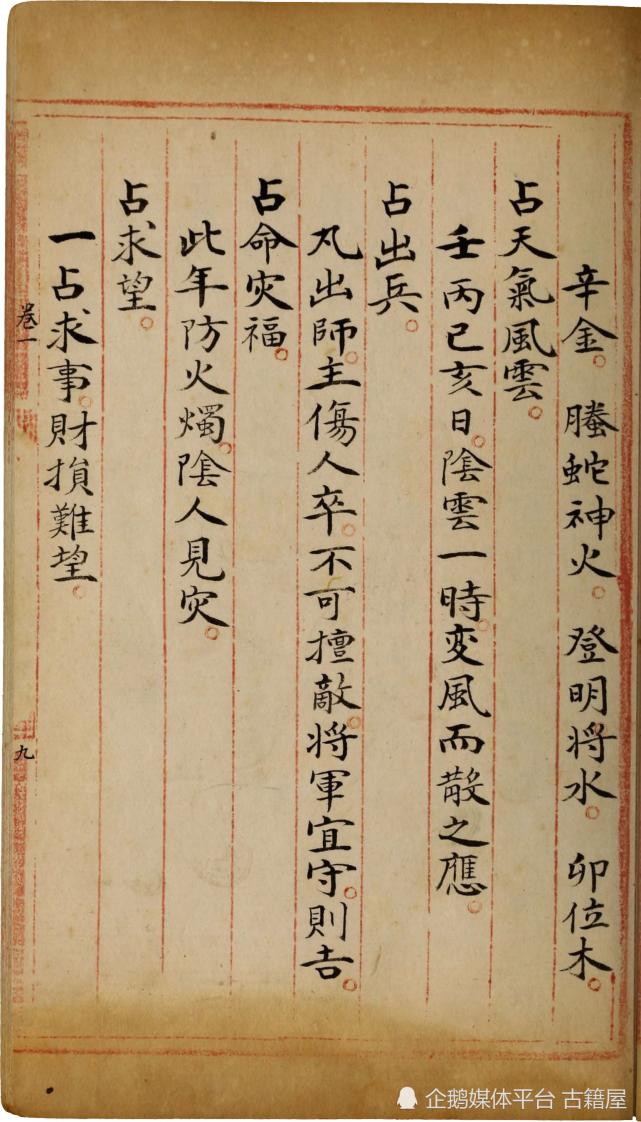 辛金。　螣蛇神火。　登明将水。　卯位木。
占天氣風雲。
壬丙巳亥日。陰雲一時。変風而散之應。
占出兵。
凡出師。主傷人卒。不可擅敵。将軍宜守。則吉。
占命灾福。
此年防火燭。陰人見灾。
占求望。
一占求事。財損難望。
卷一
九
企鹅媒体平台 古籍屋